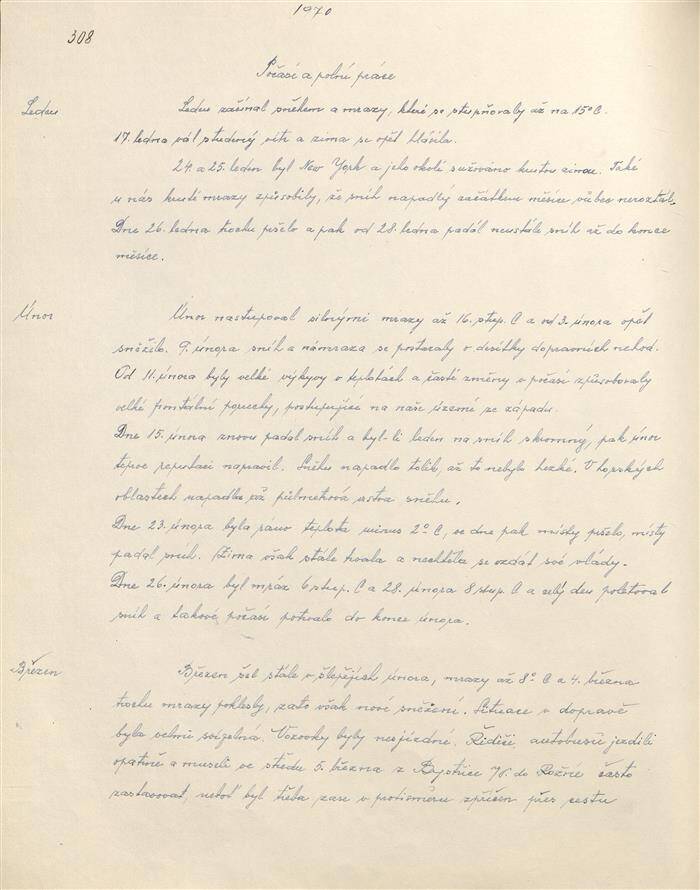 1970
308
Počasí a polní práce
Leden
Leden začínal sněhem a mrazy, které se stupňovaly až na 15° C.
17. ledna vál studený vítr a zima se opět hlásila.
24. a 25. leden byl New York a jeho okolí sužováno krutou zimou. Také
u nás kruté mrazy způsobily, že sníh napadlý začátkem měsíce vůbec neroztál.
Dne 26. ledna trochu pršelo a pak od 28. ledna padál neustále sníh až do konce
měsíce.
Únor
Únor nastupoval silnými mrazy až 16. stup. C a od 3. února opět
sněžilo. 9. února sníh a námraza se postaraly o desítky dopravních nehod.
Od 11. února byly velké výkyvy v teplotách a časté změny v počasí způsobovaly
velké frontální poruchy, postupující na naše území ze západu.
Dne 15. února znovu padal sníh a byl-li leden na sníh skromný, pak únor
teprve reputaci napravil. Sněhu napadlo tolik, až to nebylo hezké. V horských
oblastech napadla až půlmetrová vrstva sněhu.
Dne 23. února byla ráno teplota minus 2° C, ve dne pak místy pršelo, místy
padal sníh. Zima však stále trvala a nechtěla se vzdát své vlády.
Dne 26. února byl mráz 6 stup. C a 28. února 8 stup. C a celý den poletoval
sníh a takové počasí potrvalo do konce února.
Březen
Březen šel stále v šlépějích února, mrazy až 8° C a 4. března
trochu mrazy poklesly, zato však nové sněžení. Situace v dopravě
byla velmi svízelná. Vozovky byly nesjízdné. Řidiči autobusů jezdili
opatrně a museli ve středu 5. března z Bystřice n/P. do Rožné často
zastavovat, neboť byl třeba zase v protisměru zpříčen přes cestu